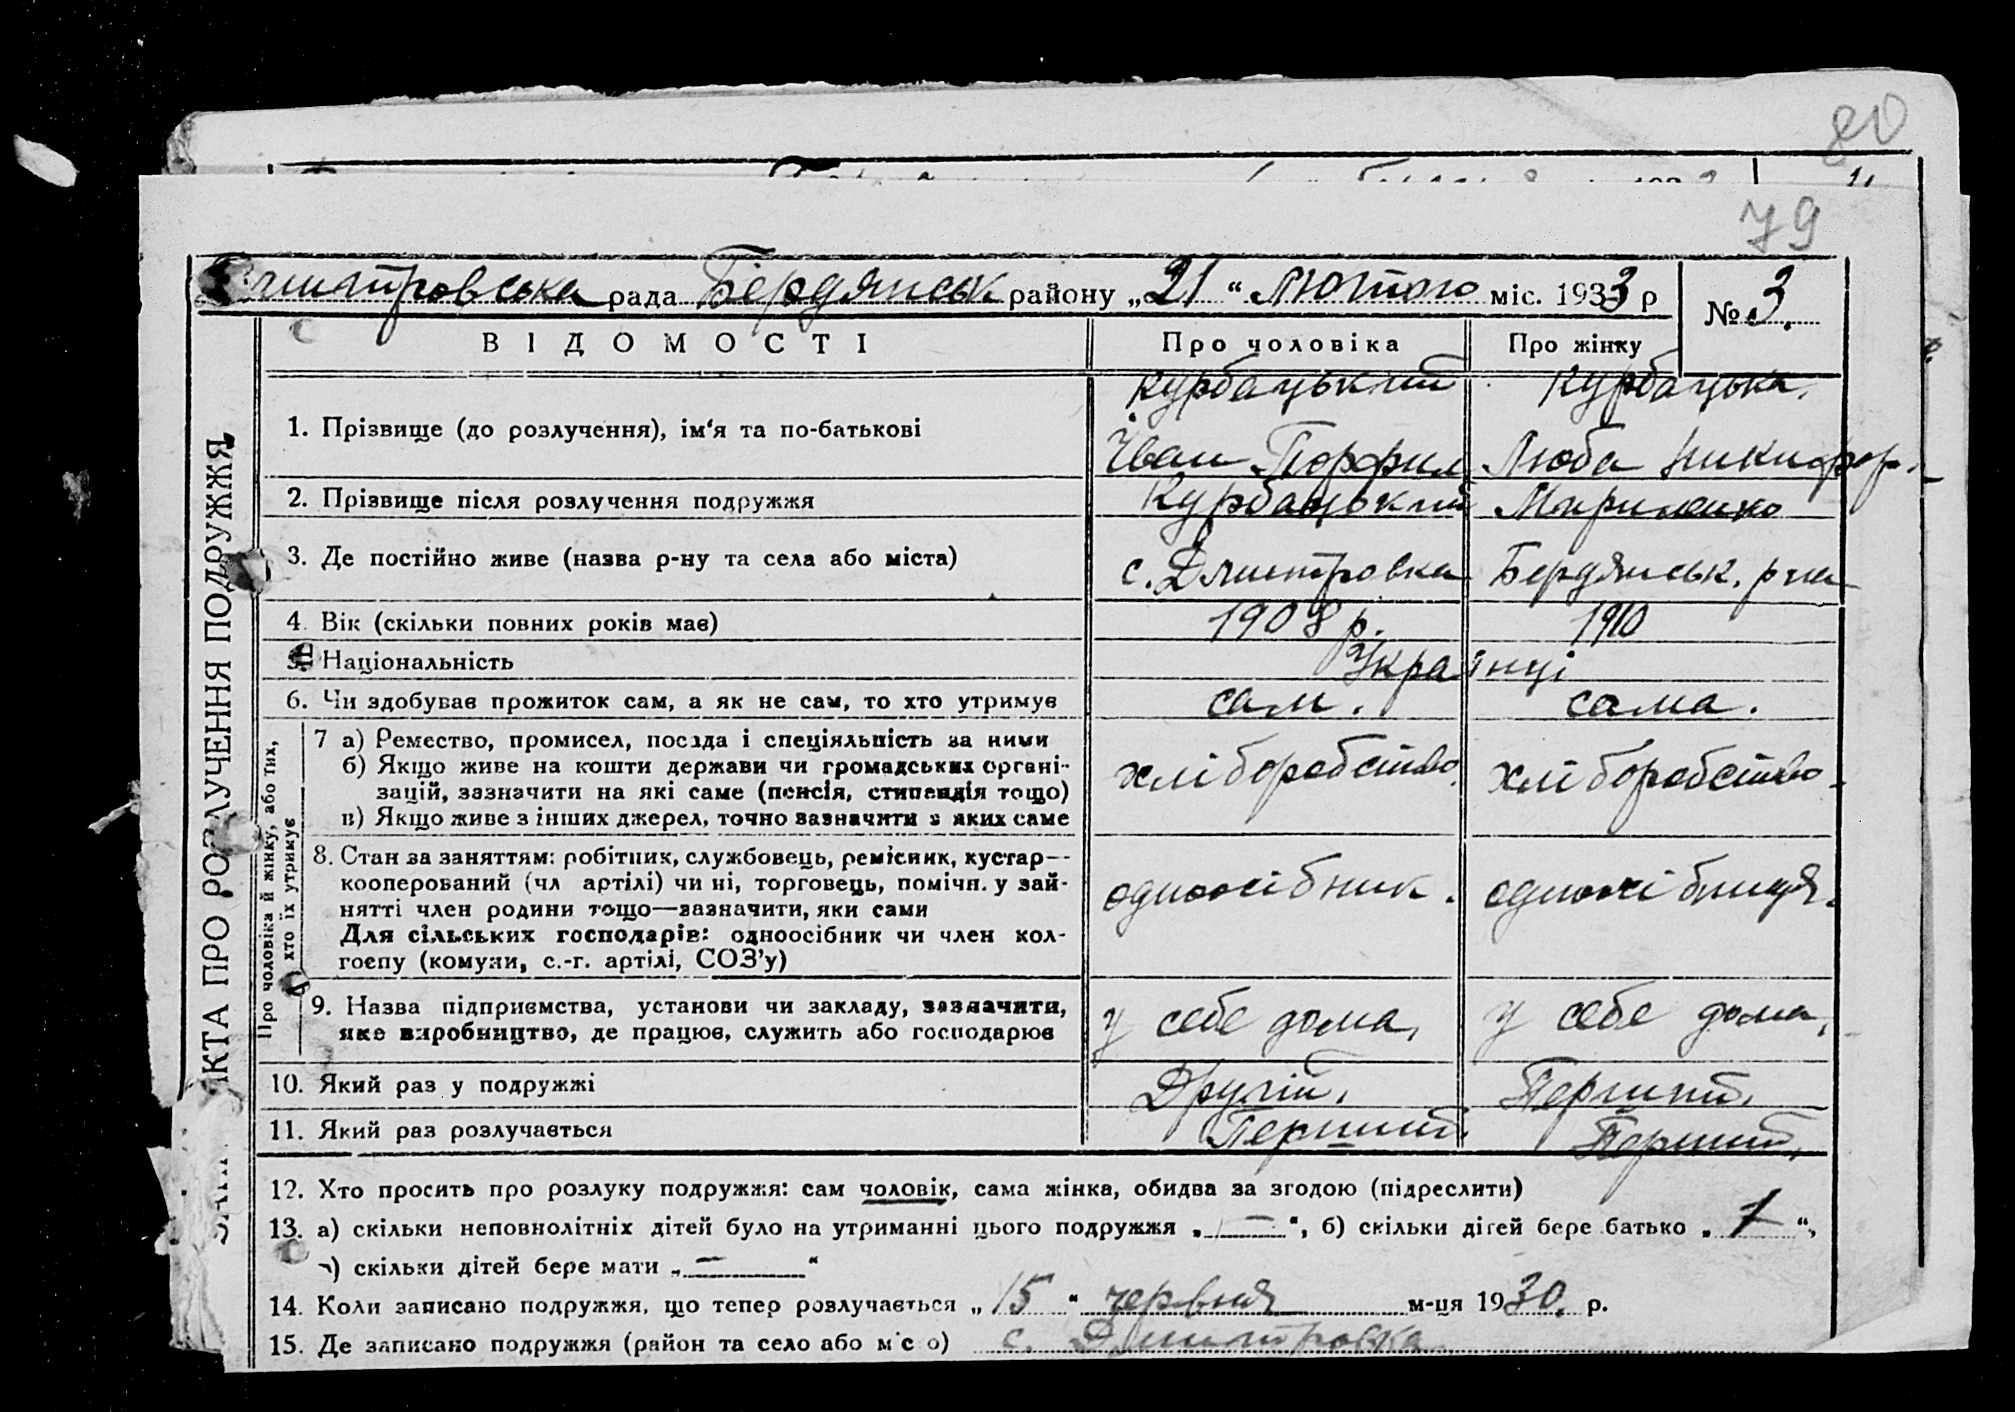 80
79
Дмитровська рада Бердянськ району „21“ Лютого міс. 1933 р
№ 3.
ВІДОМОСТІ
Про чоловіка
Про жінку
ЗАПИ КТА ПРО РОЗЛУЧЕННЯ ПОДРУЖЖЯ
1. Прізвище (до розлучення), ім‘я та по-батькові
Курбацький
Іван Порфил
Курбацька.
Люба Никифор.
2. Прізвище після розлучення подружжя
Курбацький
Мариненко
3. Де постійно живе (назва р-ну та села або міста)
с. Дмитровка Бердянськ. р на
4. Вік (скільки повних років має)
1908 р.
1910
5. Національність
Українці
6. Чи здобував прожиток сам, а як не сам, то хто утримує
сам.
сама.
Про чоловіка й жінку, або тих,
хто їх утримує
7 а) Ремество, промисел, посада і спеціяльність за ними
б) Якщо живе на кошти держави чи громадських органі-
зацій, зазначити на які саме (пенсія, стипендія тощо)
в) Якщо живе з інших джерел, точно зазначити з яких саме
хліборобство.
хліборобство.
8. Стан за заняттям: робітник, службовець, ремісник, кустар—
кооперований (чл артілі) чи ні, торговець, помічн. у зай-
нятті член родини тощо—зазначити, яки сами
Для сільських господарів: одноосібник чи член кол-
госпу (комуни, с.-г. артілі, СОЗ’у)
одноосібник.
одноосібниця.
9. Назва підприємства, установи чи закладу, зазначити,
яке виробництво, де працює, служить або господарює
у себе дома,
у себе дома,
10. Який раз у подружжі
Другій.
Перший.
11. Який раз розлучається
Перший.
Перший.
12. Хто просить про розлуку подружжя: сам чоловік, сама жінка, обидва за згодою (підреслити)
13. а) скільки неповнолітніх дітей було на утриманні цього подружжя „—“, б) скільки дітей бере батько „1“,
) скільки дітей бере мати „—“
14. Коли записано подружжя, що тепер розлучається „15“ червня м-ця 1930. р.
15. Де записано подружжя (район та село або м с о) с. Дмитровка